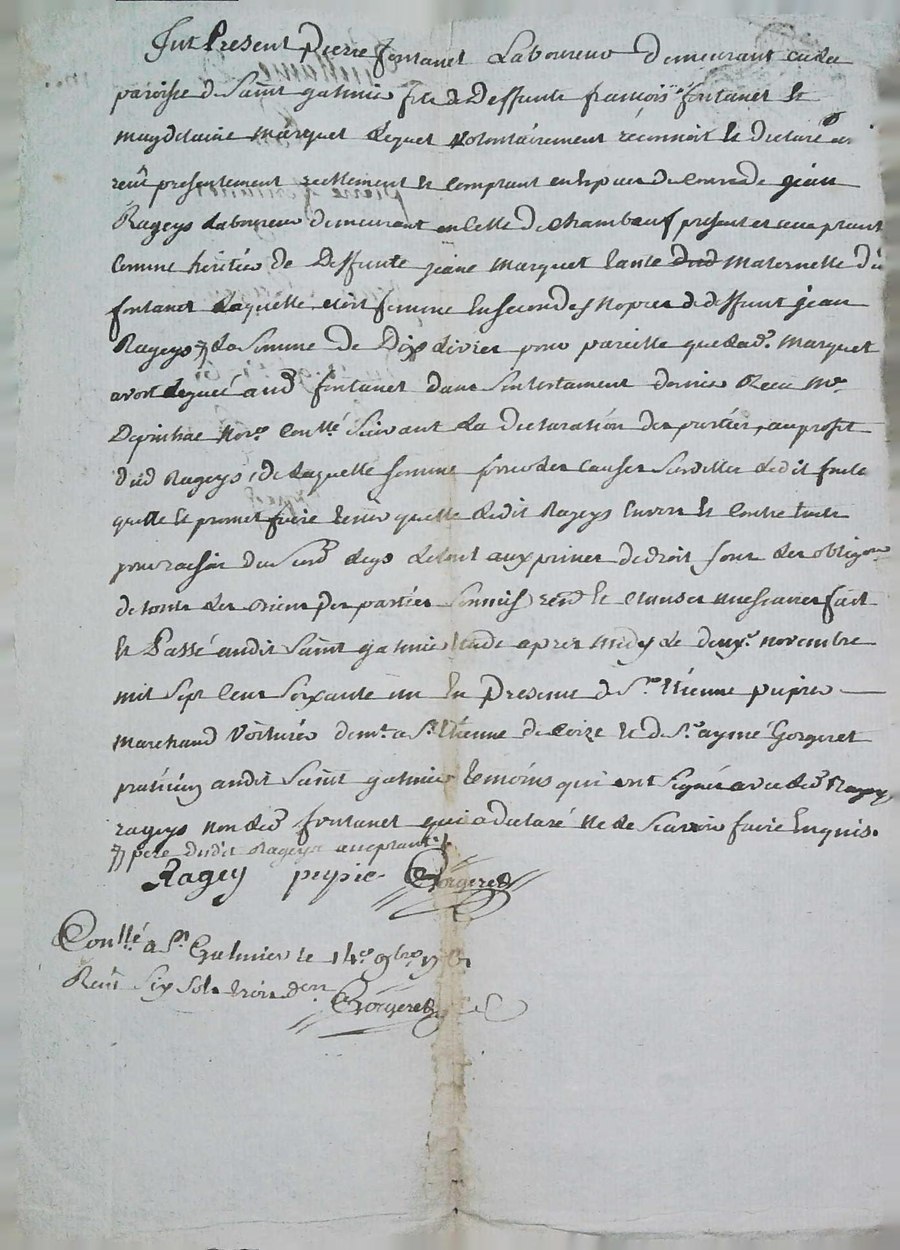 Fut Present Pierre fontanet Laboureur demeurant en la
paroisse de Saint galmier fils de deffunts françois fontanet et
magdelaine marquet Lequel volontairement reconnoit et declare avoir
receu presentement reellement et comptant en especes de cours de jean
Rageys Laboureur demeurant en celle de chambœuf present et acceptant
comme héritier de deffunte jeane marquet tante maternelle du
fontanet Laquelle etoit femme en secondes Nopces de deffunt jean
Rageys La somme de Dix Livres pour pareille que lad. Marquet
avoit Legué aud fontanet dans son testament dernier Receu Me
Depinhac Nore Contllé Suivant La declaration des parties, au profit
dud Rageys, de Laquelle somme pour les causes Sus dittes ledit fonta
quitte et promet faire tenir quitte Ledit Rageys Envers et contre touts
pour raison du Susd Legs
de touts Les biens des parties Soumis renon et clauses necessaires fait
et Passé audit Saint galmier Etude apres midy Le deuxe. novembre
mil sept cent soixante un En presence de Sr. Etienne pupier
Marchand Voiturier demt. a St. Etienne de Coize et de Sr. aymé Gorgeret
praticien audit Saint galmier temoins qui ont signé avec led Ragey
rageys non led fontanet qui a declaré ne le Scavoir faire Enquis.
pere dudit Rageys acceptant
Ragey pupier Gorgeret
Contllé a St Galmier le 14e 9bre 1761
Receu Six Sols trois den
Gorgeret